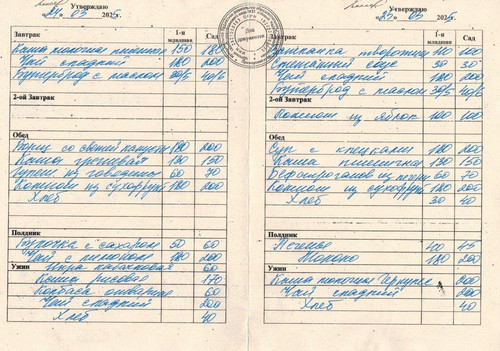 Утверждаю
03 202
Завтрак 1-я младшая Сад
Каша молочная пшенная 150 180
Чай сладкий 180 200
Бутерброд с маслом 30/5 40/6
2-ой Завтрак
Обед
Борщ со свежей капустой 180 200
Каша гречневая 130 150
Гуляш из говядины 60 70
Компот из сухофрукт 180 200
Хлеб
Полдник
Булочка с сахаром 50 60
Чай с лимоном 180 200
Ужин Икра кабачковая 60
Каша рисовая 170
Колбаса отварная 60
Чай сладкий 200
Хлеб 40
Утверждаю
25 03 202
Завтрак 1-я младшая Сад
Запеканка творожная 110
Сметанный соус 30 30
Чай сладкий 180 200
Бутерброд с маслом 30/5 40/6
2-ой Завтрак
Компот из яблок 100 100
Обед
Суп с клецками 180 200
Каша пшеничная 130 150
Бефстроганов из печени 60 70
Компот из сухофрукт 180 200
Хлеб 30 40
Полдник
Печенье 40 45
Молоко 180 200
Ужин
Каша молочная Геркулес 200
Чай сладкий 200
Хлеб 40
Для документов